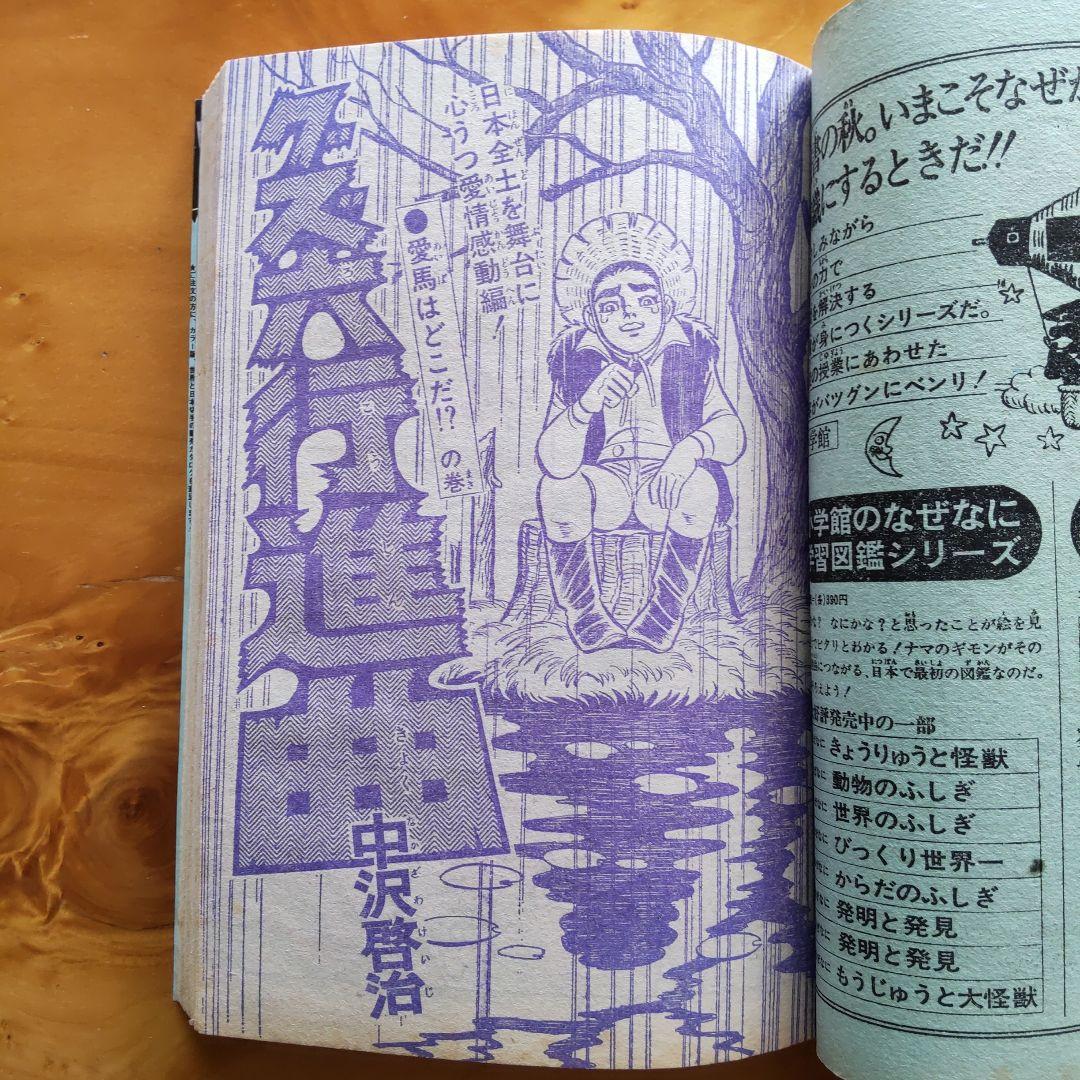 日本全土を舞台に
心うつ愛情感動編！
●愛馬はどこだ!?の巻
グズ六行進曲
中沢啓治
の秋。いまこそなぜ
にするときだ!!
しみながら
の力で
を解決する
が身につくシリーズだ。
の授業にあわせた
がバツグンにベンリ！
学館
小学館のなぜなに
学習図鑑シリーズ
(各)390円
な？なにかな？と思ったことが絵を見
でピタリとわかる！ナマのギモンがその
につながる、日本で最初の図鑑なのだ。
えよう！
好評発売中の一部
なに きょうりゅうと怪獣
なに 動物のふしぎ
なに 世界のふしぎ
なに びっくり世界一
なに からだのふしぎ
なに 発明と発見
なに 発明と発見
なに もうじゅうと大怪獣